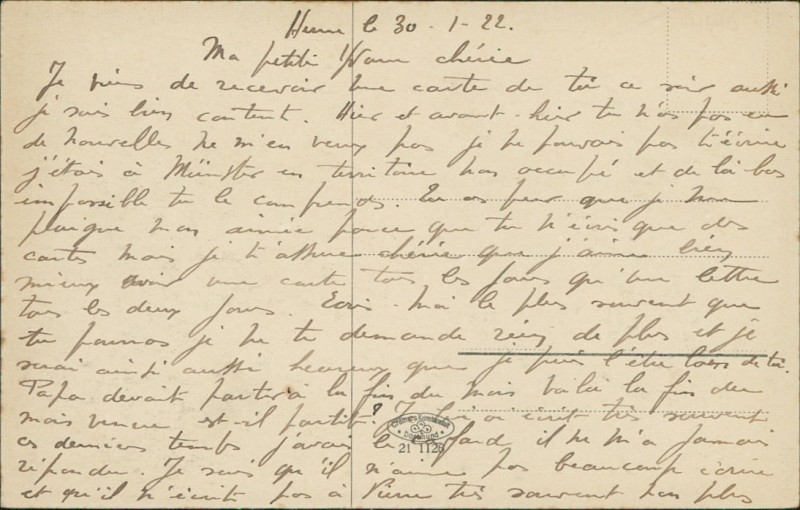 Herne le 30-1-22.
Ma petite Yvonne chérie
Je viens de recevoir une carte de toi ce soir aussi
je suis bien content. Hier et avant-hier tu n'as pas eu
de nouvelles ne m'en veux pas je ne pouvais pas t'écrire
j'étais à Münster en territoire non occupé et de là-bas
impossible tu le comprends. Tu as peur que je me
plaigne mon aimée parce que tu n'écris que des
cartes mais je t'assure chérie que j'aime bien
mieux avoir une carte tous les jours qu'une lettre
tous les deux jours. Ecris-moi le plus souvent que
tu pourras je ne te demande rien de plus et je
serai ainsi aussi heureux que je puis l'être loin de toi.
Papa devait partir à la fin du mois voilà la fin du
mois venue est-il parti? Je lui ai écrit très souvent
ces derniers temps j'avais le il ne m'a jamais
répondu. Je sais qu'il n'aime pas beaucoup écrire
et qu'il n'écrit pas à Pierre très souvent non plus
Dortmund
21 1128